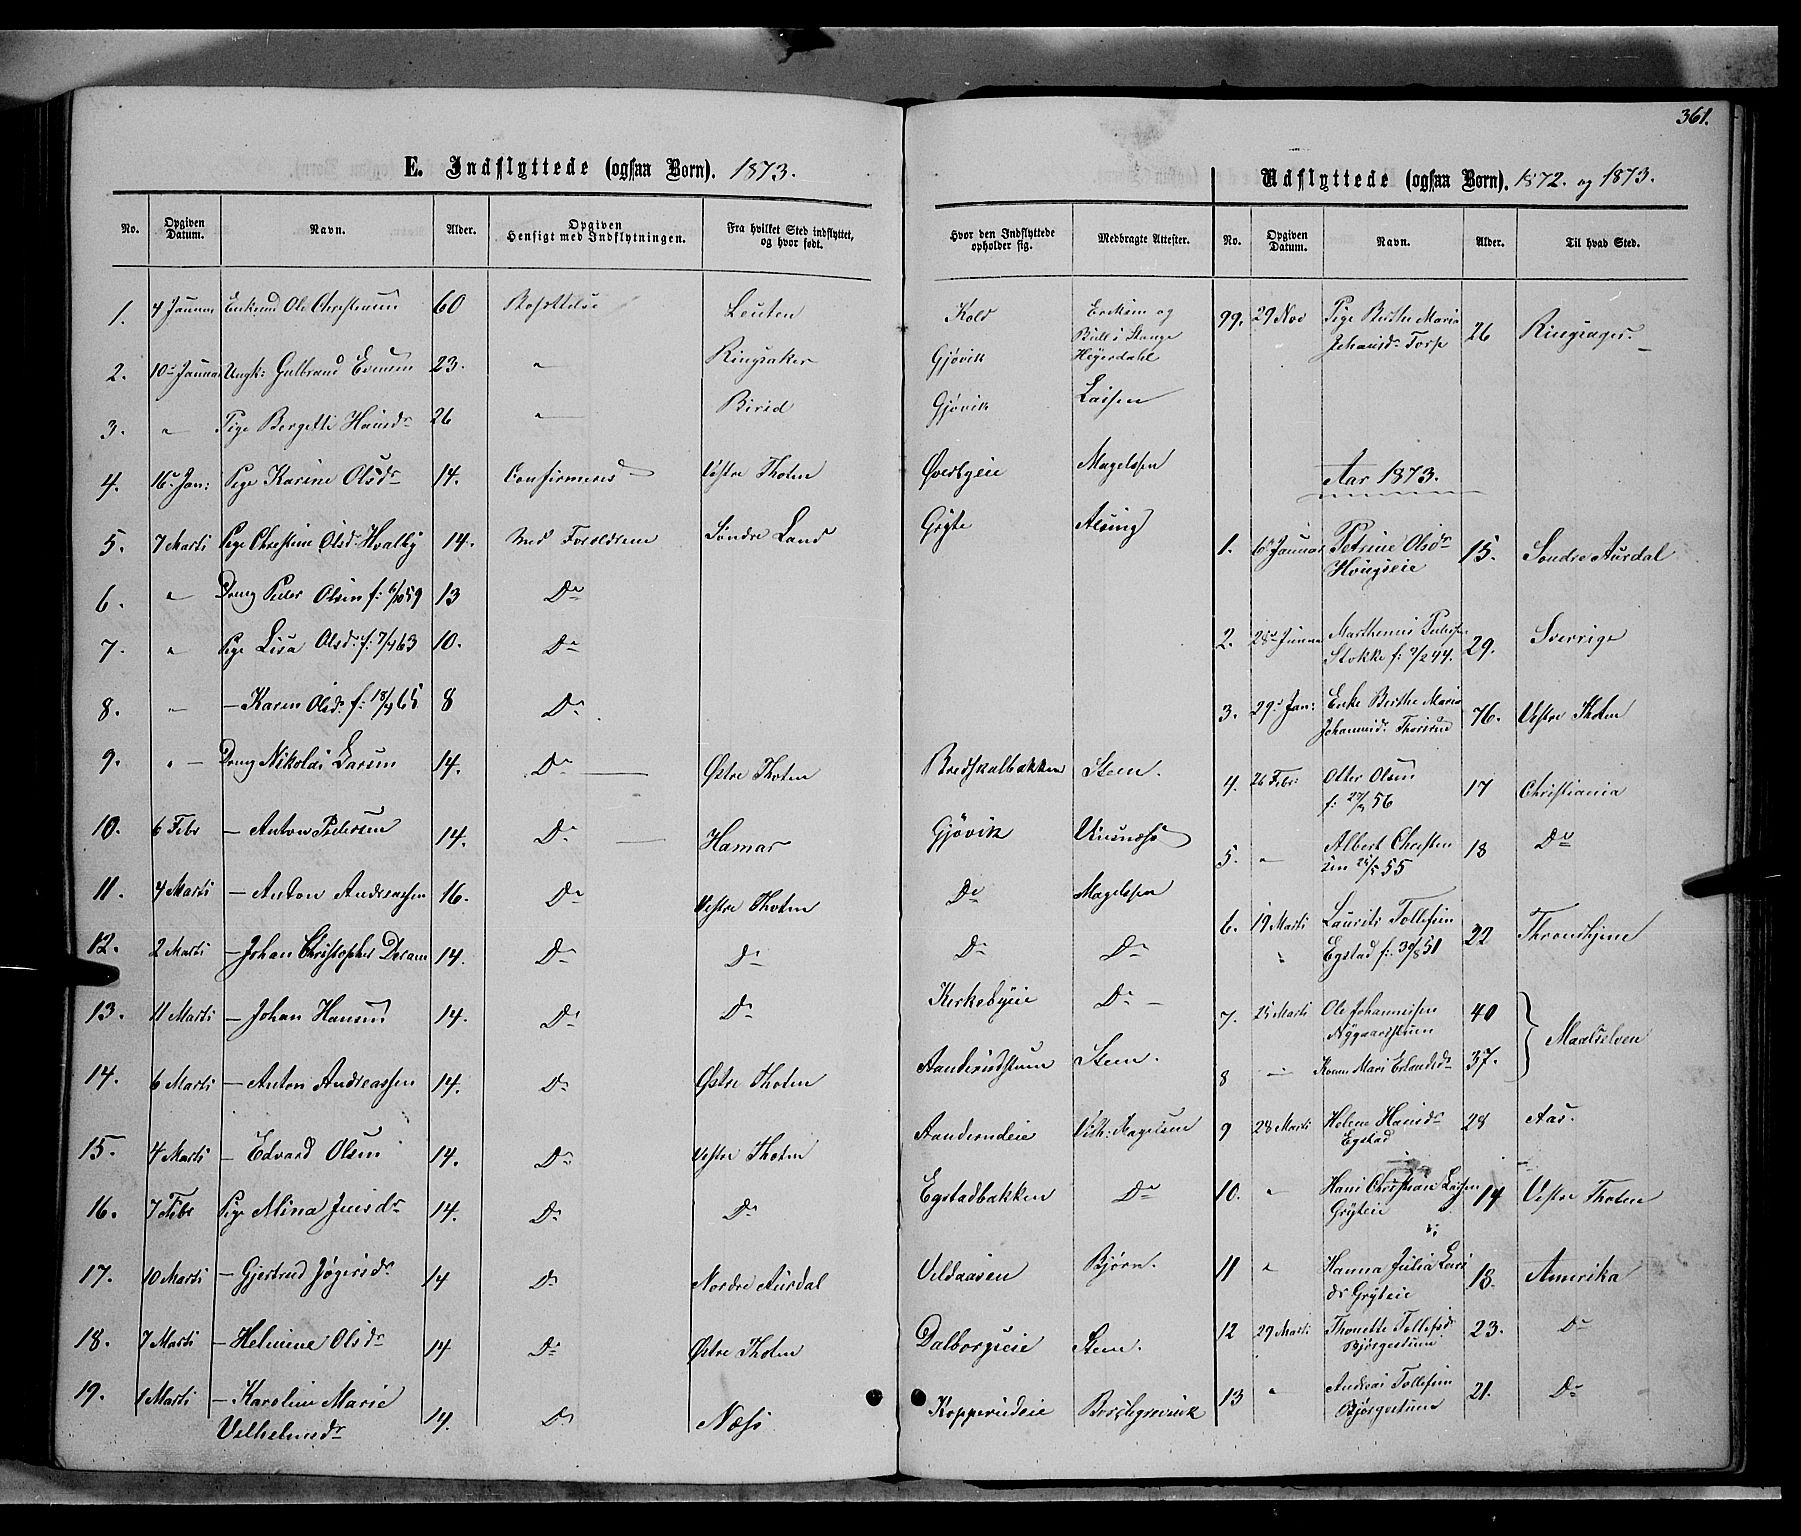 361.
E. Indflyttede (ogsaa Born). 1873.
No. Opgiven Datum. Navn. Alder. Opgiven Hensigt med Indflytningen. Fra hvilket Sted indflyttet, og hvor født. Hvor den Indflyttede opholder sig. Medbragte Attester.
1. 4 Januar Enkemd Ole Christensen 60 Bosættelse Leuten Kold
2. 10 Januar Ungk: Gulbrand Evensen 23. " Ringsaker Gjøvik
3. " Pige Bergitte Hansdr 26 " Birid Gjøvik Larsen
4. 16 Jan: Pige Karine Olsdr 14. Confirmeres Vestre Thoten Øverbyeie Magelssen
5. 7 Marts Pige Christine Olsdr Hvalby 14. Med Forældrene Søndre Land Gryte Alsing
6. " Dreng Peder Olsen f: 6/10 59 13 Do
7. " Pige Lisa Olsdr f: 7/4 63 10. Do
8. " – Karen Olsdr f: 18/4 65 8 Do
9. " – Dreng Nikolai Larsen 14. Do Østre Thoten Bredskalbakken Steen.
10. 6 Febr – Anton Pedersen 14. Do Hamar Gjøvik
11. 4 Marts – Anton Andreassen 16. Do Vestre Thoten Do Magelssen
12. 2 Marts – Johan Christopher 14. Do Do Do Do
13. 11 Marts – Johan Hansen 14. Do Do Kirkebyeie Do –
14. 6 Marts – Anton Andreassen 14. Do Østre Thoten Aanderudstuen Steen.
15. 4 Marts – Edvard Olsen 14. Do Vestre Thoten Aanderudeie Vilh: Magelssen
16. 7 Febr Pige Mina Jensdr 14. Do Do Egstadbakken Do
17. 10 Marts – Gjertrud Jøgersdr 14 Do Nordre Aurdal Veldaasen Bjørn.
18. 7 Marts – Helmine Olsdr 14 Do Østre Thoten Dalborgeie Steen.
19. 1 Marts – Karoline Marie
Vilhelmsdr 14. Do Næss Kopperudeie Borchgrevink
Udflyttede (ogsaa Born). 1872. og 1873.
No. Opgiven Datum. Navn. Alder. Til hvad Sted.
99. 29 Nov Pige Berthe Maria
Johansdr Torp 26 Ringsager.
Aar 1873.
1. 6 Januar Petrine Olsdr
Hougseie 15. Søndre Aurdal
2. 28 Januar Marthinus Pedersen
Stokke f: 9/2 44. 29. Sverrige
3. 29 Jan: Enke Berthe Maria
Johannesdr 76. Vestre Thoten
4. 26 Febr Otter Olsen
f: 27/2 56 17 Christiania
5. " Albert Christen
sen 25/5 55 18 Do
6. 19 Marts Laurits Tollefsen
" Egstad f: 30/8 51 22 Thronhjem
7. 25 Marts Ole Johannessen
Nygaardstuen 40 Maalselven
8 " Mari Erlandsdr 37.
9 28 Marts Helene Hansdr
Egstad 28 Aas.
10. " Hans Christian Larsen
Gryteie 14 Vestre Thoten
11 " Hanna Julia Lars
dr Gryteie 18. Amerika
12 29 Marts Thonette Tollefsdr
Bjørgestuen 23. Do
13 " Andreas Tollefsen
Bjørgestuen 21. Do